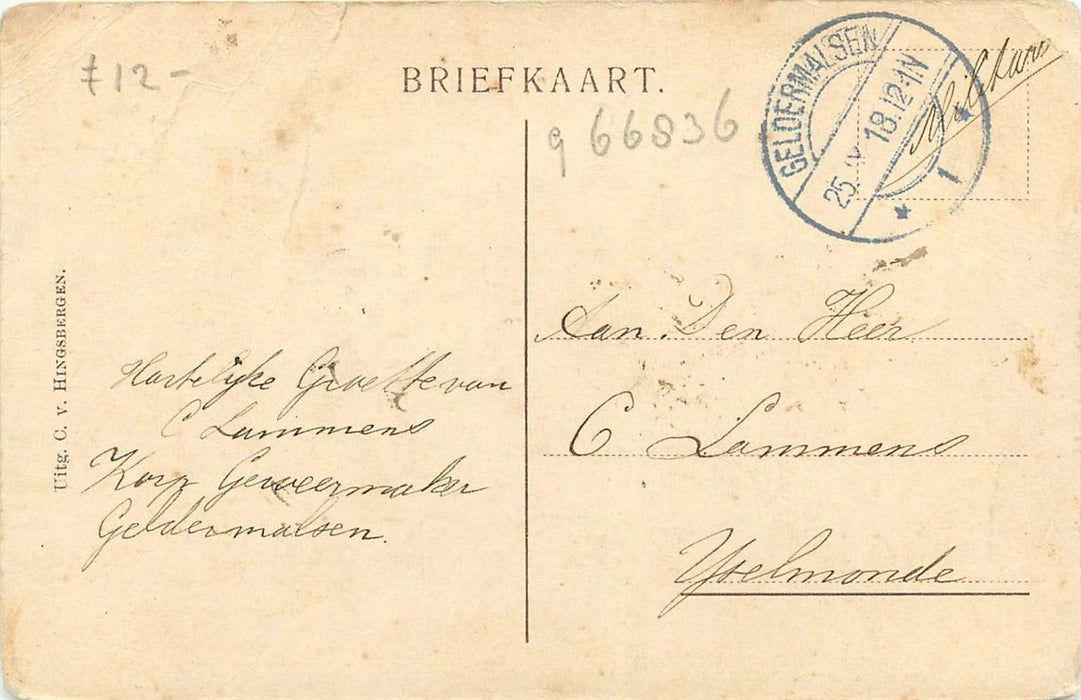 ƒ12-
BRIEFKAART.
g 66836
GELDERMALSEN
25. 18.12-1N
1
Militair
Uitg. C. v. HINGSBERGEN.
Hartelijke Groette van
C Lammens
Korp Geweermaker
Geldermalsen.
Aan Den Heer
C Lammens
Yselmonde